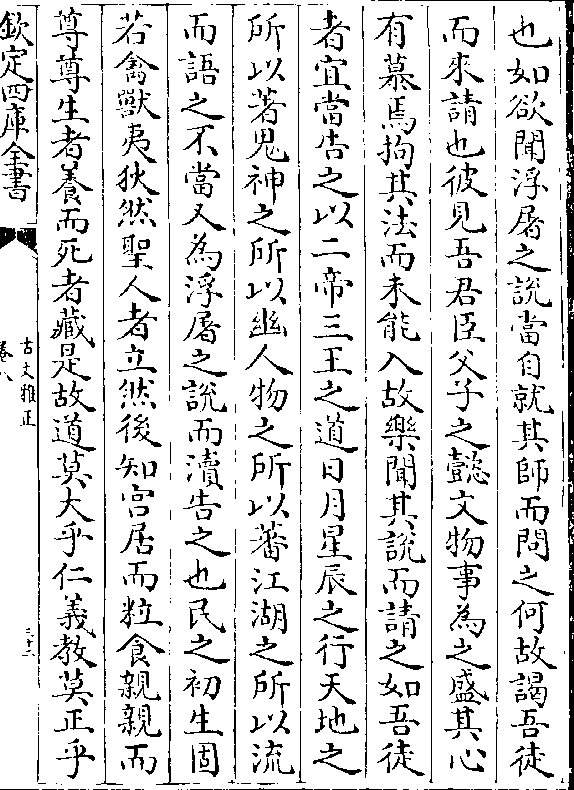 也如欲聞浮屠之說當自就其師而問之何故謁吾徒
而來請也彼見吾君臣父子之懿文物事為之盛其心
有慕焉拘其法而未能入故樂聞其說而請之如吾徒
者宜當告之以二帝三王之道日月星辰之行天地之
所以著鬼神之所以幽人物之所以蕃江湖之所以流
而語之不當又為浮屠之說而瀆告之也民之初生固
若禽獸夷狄然聖人者立然後知宮居而粒食親親而
尊尊生者養而死者藏是故道莫大乎仁義教莫正乎
欽定四庫全書
古文雅正
卷八
三十二